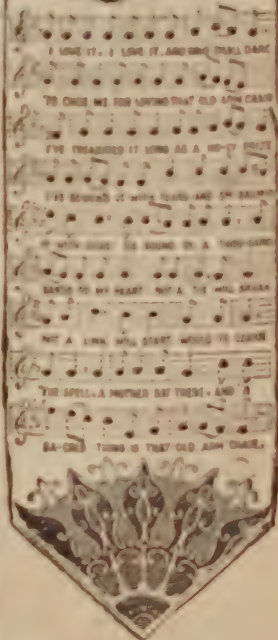 I LOVE IT, I LOVE IT, AND WHO SHALL DARE
TO CHIDE ME FOR LOVING THAT OLD ARM CHAIR
I'VE TREASURED IT LONG AS A HO-LY PRIZE
I'VE BEDEWED IT WITH TEARS AND EM-BALMED
IT WITH SIGHS 'TIS BOUND BY A THOU-SAND
BANDS TO MY HEART NOT A TIE WILL BREAK
NOT A LINK WILL START WOULD YE LEARN
THE SPELL, A MOTHER SAT THERE, AND A
SA-CRED THING IS THAT OLD ARM CHAIR.